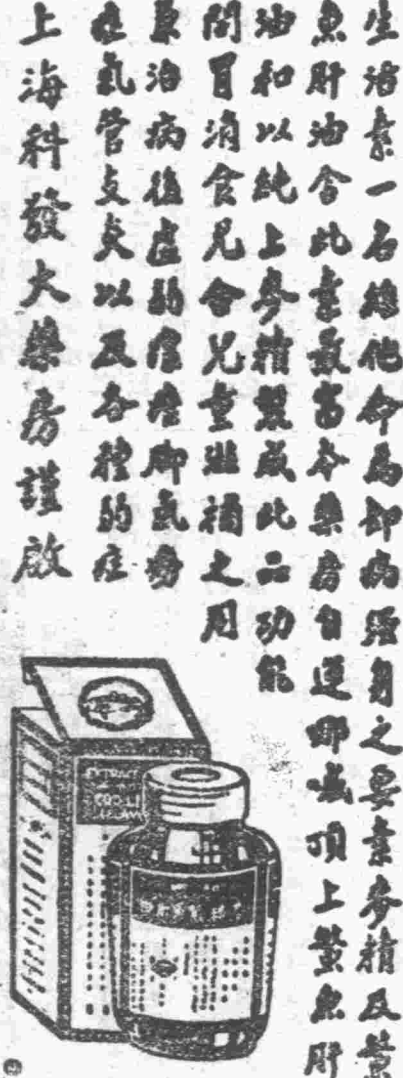 生活素一名維他命為却病強身之要素麥精及鱉
魚肝油含此素最富本藥房自運挪威頂上鱉魚肝
油和以純上麥精製成此品功能
開胃消食尤合兒童滋補之用
兼治病後虛弱瘰癧脚氣癆
症氣管支炎以及各種弱症
上海科發大藥房謹啟
EXTRACT